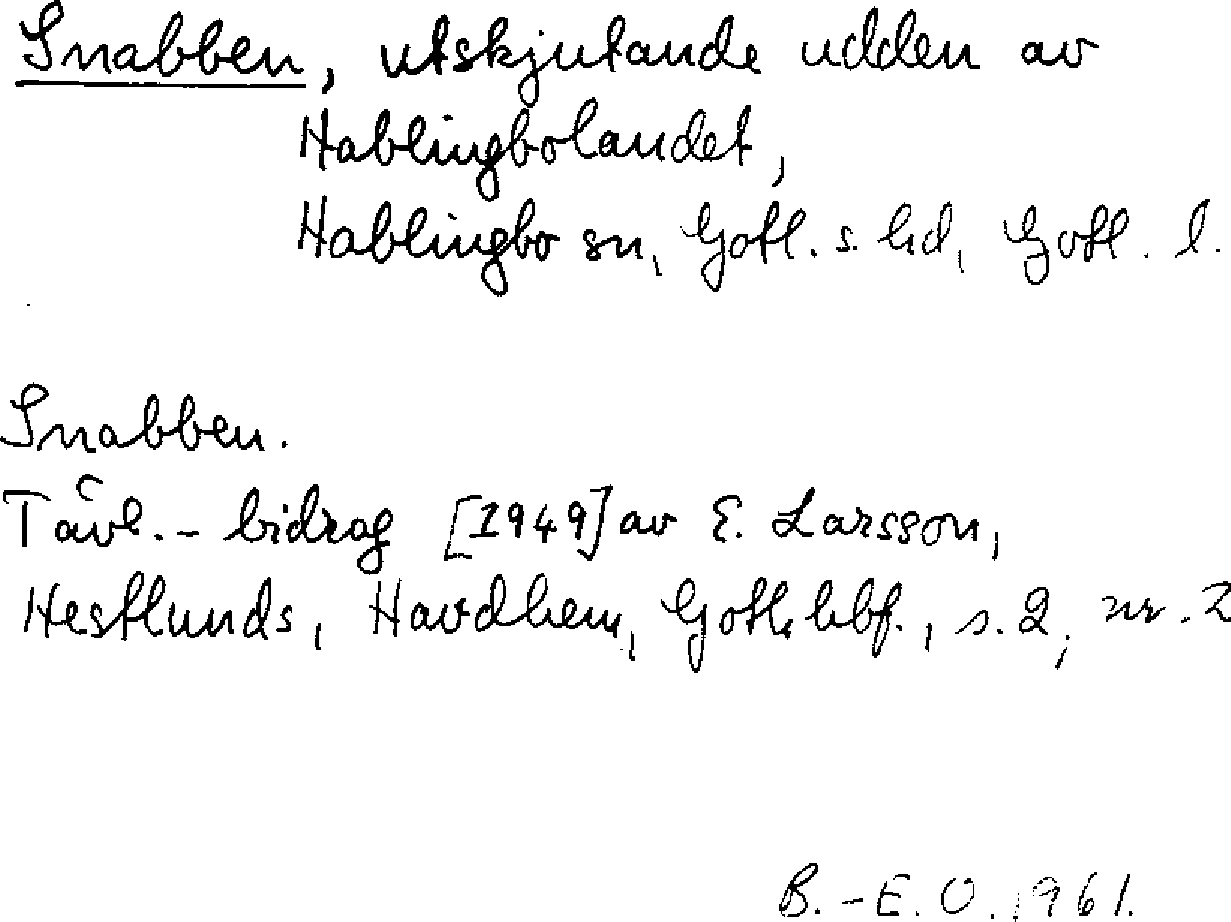 Snabben, utskjutande udden av
Hablingbolandet,
Hablingbo sn, Gotl. s. hd, Gotl. l.
Snabben.
Tävl.- bidrag [1949] av E. Larsson,
Hestlunds, Havdhem, Gotl. hbf., s. 2, nr. 2
B.-E. O. 1961.